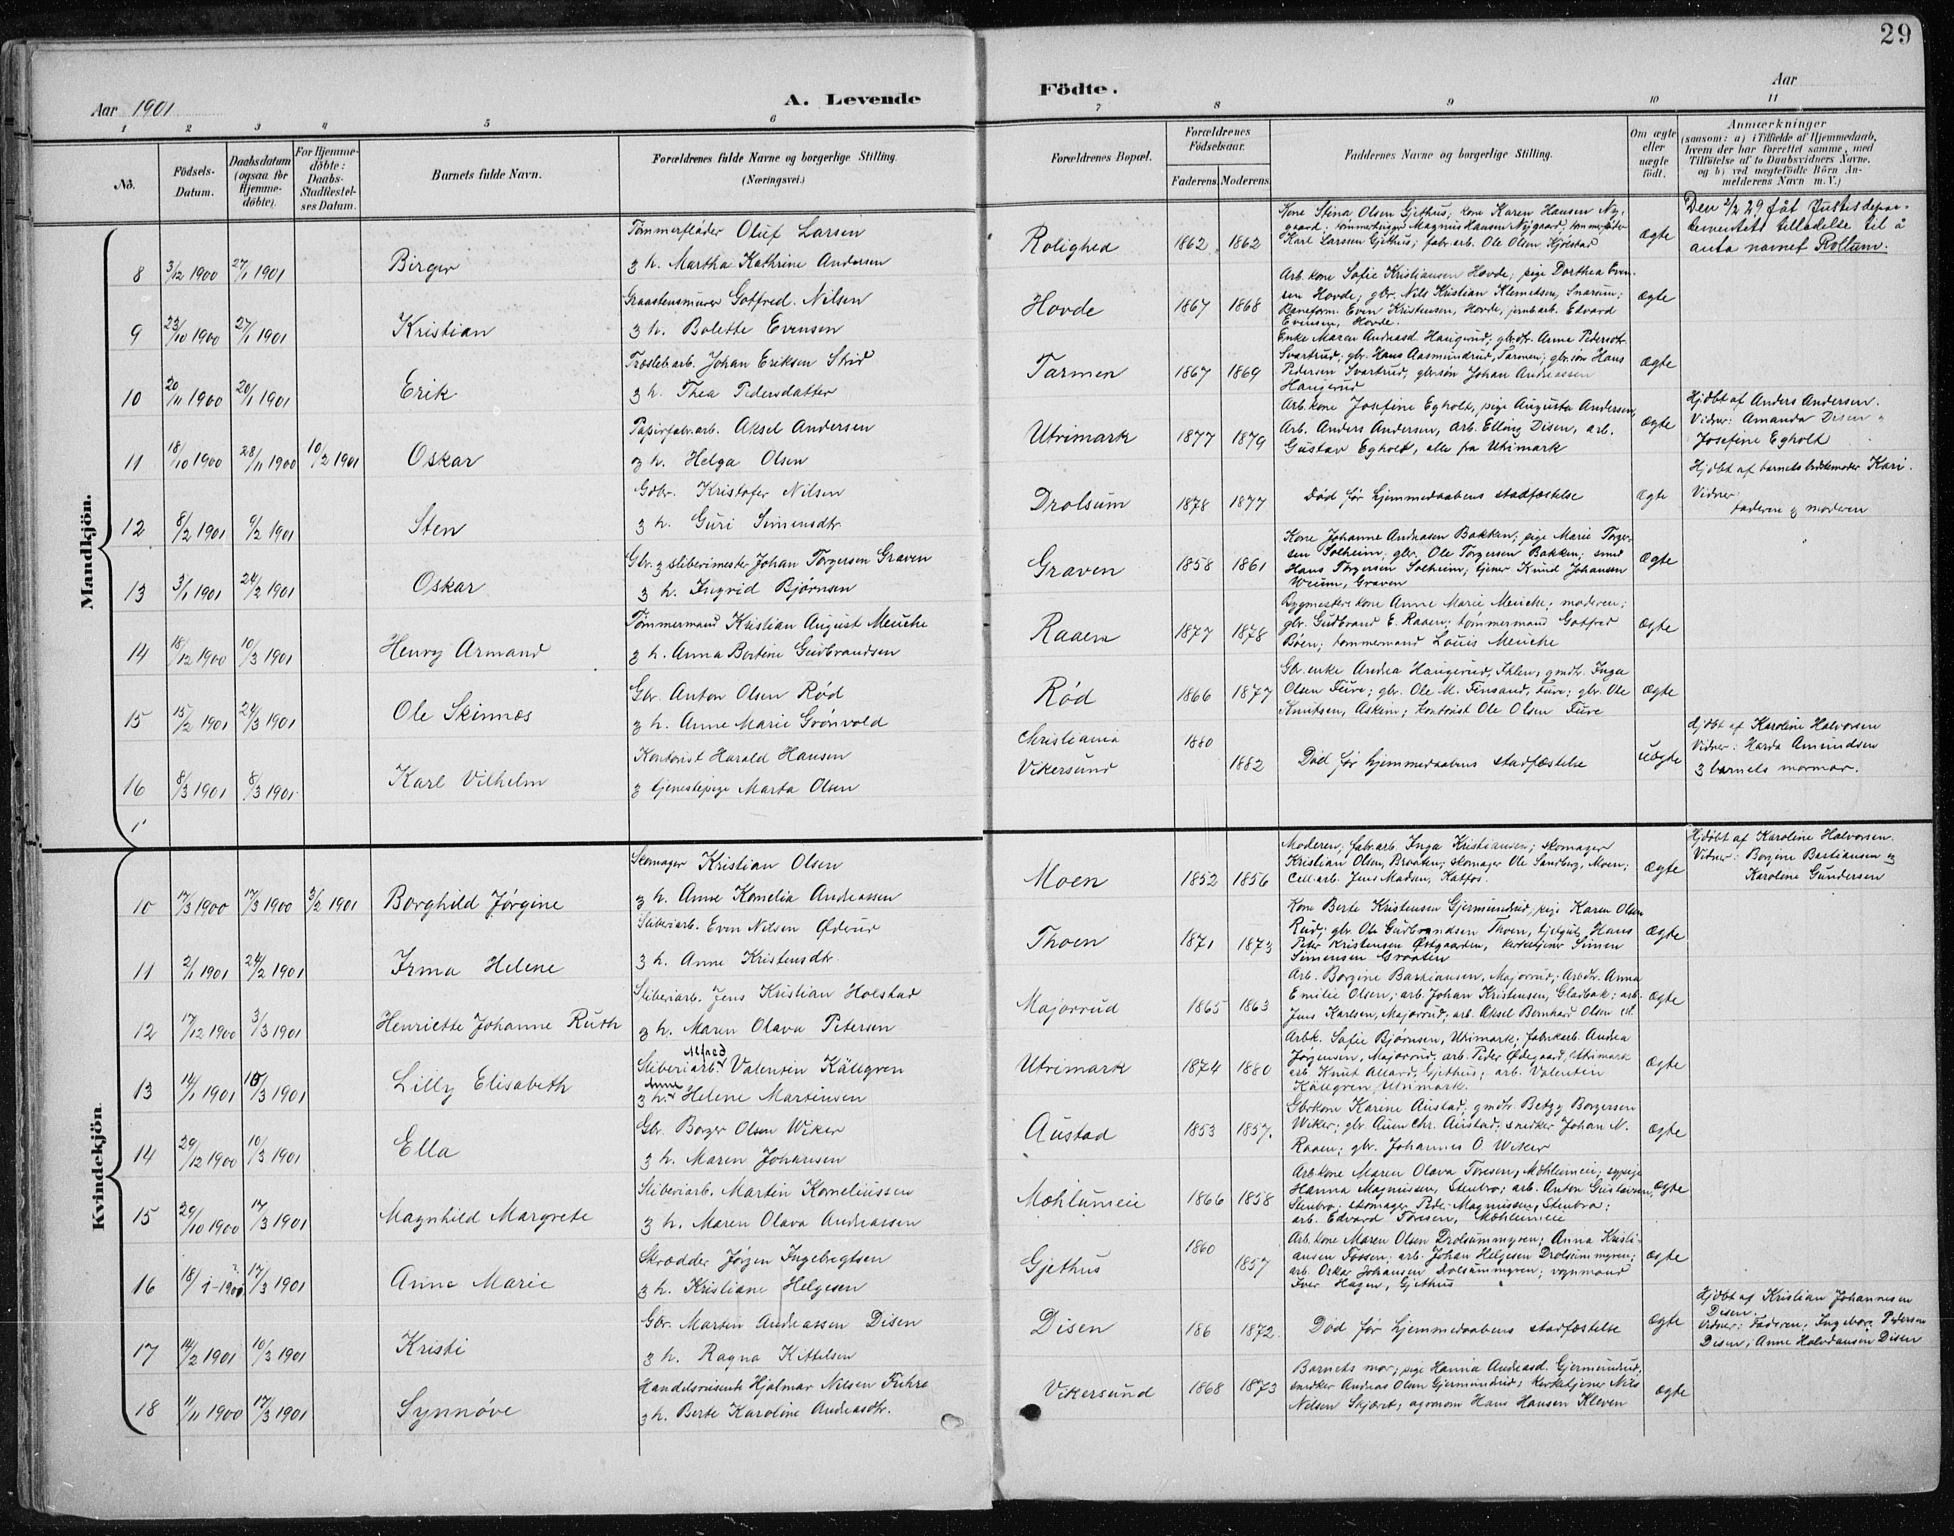 29
Aar 1901
A. Levende
Födte.
Aar
1 2 3 4 5 6 7 8 9 10 11
No.
Födsels-
Datum.
Daabsdatum
(ogsaa for
Hjemme-
döbte).
For Hjemme-
döbte:
Daabs-
Stadfæstel-
ses Datum.
Barnets fulde Navn.
Forældrenes fulde Navne og borgerlige Stilling.
(Næringsvei.)
Forældrenes Bopæl.
Forældrenes
Födselsaar.
Faderens. Moderens.
Faddernes Navne og borgerlige Stilling.
Om ægte
eller
uægte
födt.
Anmærkninger
(saasom: a) i Tilfælde af Hjemmedaab,
hvem der har forrettet samme, med
Tilföielse af to Daabsvidners Navne,
og b) ved uægtefödte Börn An-
melderens Navn m. V.)
Mandkjön.
8 3/12 1900 27/1 1901 Birger
Tømmerfløder Oluf Larsen
& h. Martha Kathrine Andersen
Rolighed 1862 1862
Kone Stina Olsen Gjethus; kone Karen Hansen Ny-
gaard; tømmerhugger Magnus Hansen Nygaard, tømmerfløder
Karl Larsen Gjethus; fabr.arb. Ole Olsen Kjølstad
Ægte
Den 2/2 29 fåt Justisdepar-
tementets tilladelse til å
anta navnet Rollum.
9 23/10 1900 27/1 1901 Kristian
Graastensmurer Gotfred Nilsen
& h. Bolette Evensen
Hovde 1867 1868
Arb.kone Sofie Kristiansen Hovde; pige Dorthea Even-
sen Hovde; gbr. Nils Kristian Klemetsen, Snarum;
Baneform. Even Kristensen, Hovde, jernb.arb. Edvard
Evensen, Hovde.
Ægte
10 20/11 1900 20/1 1901 Erik
Træsleb.arb. Johan Eriksen Strid
& h. Thea Pedersdatter
Tarmen 1867 1869
Enke Maren Andreasd. Haugerud; gbr.dtr. Anne Pedersdtr.
Svartrud; gbr. Hans Aasmundrud, Tarmen; gbr.søn Hans
Pedersen Svartrud, gbr.søn Johan Andreassen
Haugerud
Ægte
11 18/10 1900 28/11 1900 10/2 1901 Oskar
Papirfabr.arb. Aksel Andersen
& h. Helga Olsen
Utrimark 1877 1879
Arb.kone Josefine Egholt, pige Augusta Andersen,
Arb. Anders Andersen, Arb. Elling Disen, arb.
Gustav Egholt, alle fra Utrimark
Ægte
Hjdbt af Anders Andersen.
Vidner: Amanda Disen
Josefine Egholt
12 8/2 1901 9/2 1901 Sten
Gbr. Kristofer Nilsen
& h. Guri Simensdtr.
Drolsum 1878 1877
Død før hjemmedaabens stadfæstelse
Ægte
Hjdbt af barnets bedstemoder Kari.
Vidner:
faderen & moderen
13 3/1 1901 24/2 1901 Oskar
Gbr. & sliberimester Johan Torgersen Graven
& h. Ingrid Bjørnsen
Graven 1858 1861
Kone Johanne Andreasen Bakken; pige Marie Torger-
sen Solheim; gbr. Ole Torgersen Bakken; smed
Hans Torgersen Solheim; tjener Knud Johansen
Weum, Graven
Ægte
14 18/12 1900 10/3 1901 Henry Armand
Tømmermand Kristian August Meuche
& h. Anna Bertine Gudbrandsen
Raaen 1877 1878
Bygmesters kone Anne Marie Meuche; moderen;
gbr. Gudbrand E. Raaen; tømmermand Gotfred
Bøen; tømmermand Louis Meuche
Ægte
15 15/2 1901 24/3 1901 Ole Skinnes
Gbr. Anton Olsen Rød
& h. Anne Marie Grønvold
Rød 1866 1877
Gbr.enke Andrea Haugerud, Ihlen, gmdtr. Inga
Olsen Fure; gbr. Ole M. Finsand, Fure; gbr. Ole
Knutsen, Askim; kontorist Ole Olsen Fure
Ægte
16 8/3 1901 8/3 1901 Karl Vilhelm
Kontorist Harald Hansen
& tjenestepige Marta Olsen
Christiania
Vikersund
1880
1882
Død før hjemmedaabens stadfæstelse
uægte
Hjdbt af Karoline Halvorsen
Vidner: Harda Amundsen
& barnets mormor.
Kvindekjön.
10 17/3 1900 17/3 1900 3/2 1901 Borghild Jørgine
Skomager Kristian Olsen
& h. Anne Kornelia Andreassen
Moen 1852 1856
Moderen; fabr.arb. Inga Kristiansen; skomager
Kristian Olsen, Braaten; skomager Ole Sandberg, Moen;
Cell.arb. Jens Madsen, Katfos.
Ægte
Hjdbt af Karoline Halvorsen.
Vidner: Borgine Bastiansen &
Karoline Gundersen
11 2/1 1901 24/2 1901 Irma Helene
Sliberiarb. Even Nilsen Øderud
& h. Anne Kristensdtr.
Thoen 1871 1873
Kone Berte Kristensen Gjermundrud, pige Karen Olsen
Rud; gbr. Ole Gudbrandsen Thoen, Hans
Peter Kristensen Østgaarden, kirketjener Simen
Simensen Graaten
Ægte
12 17/12 1900 3/3 1901 Henriette Johanne Ruth
Sliberiarb. Jens Kristian Holstad
& h. Maren Olava Petersen
Majorrud 1865 1863
Arb. Borgine Bastiansen, Majorrud; Arb.dtr. Anna
Emilie Olsen; arb. Johan Kristensen, Gladbak; arb.
Jens Karlsen, Majorrud; arb. Aksel Bernhard Olsen
Ægte
13 14/1 1901 10/3 1901 Lilly Elisabeth
Sliberiarb. Alfred Valentin Källgren
& h. Anne Helene Martinsen
Utrimark 1874 1880
Arbk. Sofie Bjørnsen, Utrimark; fabrikarb. Andrea
Jørgensen, Majorrud; arb. Peder Ødegaard, Utrimark
arb. Knut Allard, Gjethus; arb. Valentin
Källgren, Utrimark.
Ægte
14 29/12 1900 10/3 1901 Ella
Gbr. Borger Olsen Wiker
& h. Maren Johansen
Austad 1853 1857.
Gbrkone Karine Austad; gmdtr. Betzy Borgersen
Wiker; gbr. Auen Chr. Austad; snedker Johan N.
Raaen; gbr. Johannes O. Wiker
Ægte
15 29/10 1900 17/3 1901 Magnhild Margrete
Sliberiarb. Martin Korneliussen
& h. Maren Olava Andreassen
Mæhlumeie 1866 1858
Arbkone Maren Olava Toresen, Mæhlumeie; sypige
Hanna Magnussen, Stenbro; arb. Anton Gustavsen,
Stenbro; skomager Peder Magnussen, Stenbro;
arb. Edvard Toresen, Mæhlumeie
Ægte
16 18/1-1900 ? 17/3 1901 Anne Marie
Skrædder Jørgen Ingebregtsen
& h. Kristiane Helgesen
Gjethus 1860 1857
Arb.kone Maren Olsen Drolsummyren; Anna Kristi-
ansen Fossen; arb. Johan Helgesen Drolsummyren;
arb. Oskar Johansen Drolsummyren; vognmand
Iver Hagen, Gjethus
Ægte
17 14/2 1901 10/3 1901 Kristi
Gbr. Martin Andreassen Disen
& h. Ragna Kittelsen
Disen 186 1872.
Død før hjemmedaabens stadfæstelse
Ægte
Hjdbt af Kristian Johannesen
Disen.
Vidner: Faderen; Ingeborg Pedersen
Disen; Anne Halvdansen Disen
18 11/11 1900 17/3 1901 Synnøve
Handelsreisende Hjalmar Nilsen Fuhre
& h. Berte Karoline Andreasdtr.
Vikersund 1868 1873
Barnets mor; pige Hanna Andreasd. Gjermundrud,
snedker Andreas Olsen Gjermundrud; kirketjener Nils
Nilsen Skjæret; agronom Hans Hansen Kleven
Ægte